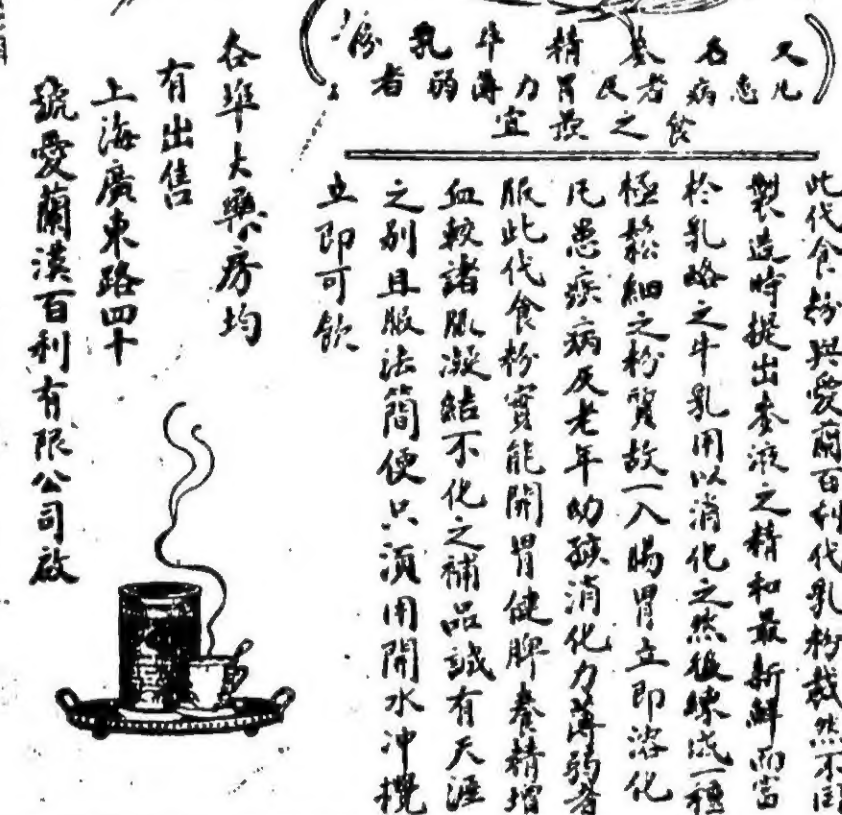 又名麥精牛乳粉
凡患病者及胃力薄弱者
食之最宜
此代食粉與愛蘭百利代乳粉截然不同
製造時提出麥液之精和最新鮮而富
於乳酪之牛乳用以消化之然後煉成一種
極鬆細之粉質故一入腸胃立即溶化
凡患疾病及老年幼孩消化力薄弱者
服此代食粉實能開胃健脾養精增
血較諸服凝結不化之補品誠有天涯
之別且服法簡便只須用開水冲攪
立即可飲
各埠大藥房均
有出售
上海廣東路四十
號愛蘭漢百利有限公司啟